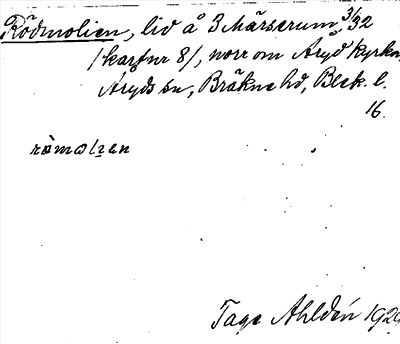 Rödmolien, lid å 3 Märserum 3/32
/kartnr 8/, norr om Aryd kyrka,
Aryds sn, Bräkne hd, Blek. l.
16.
Tage Ahldén 192